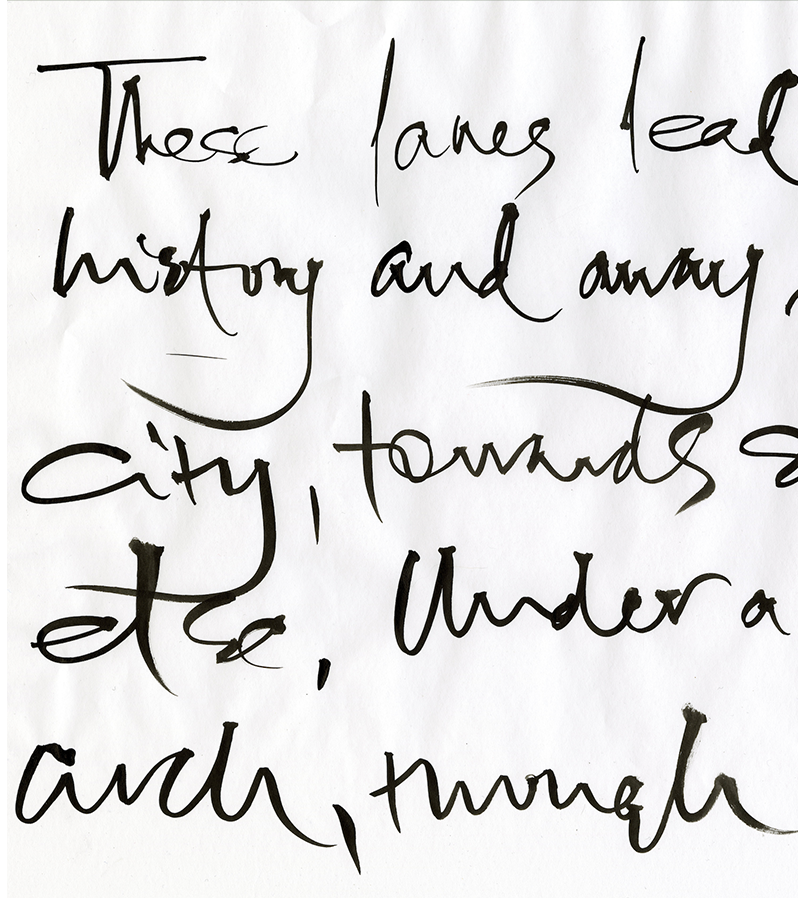 These lanes lead
history and away,
city, towards
else, Under a
arch, through